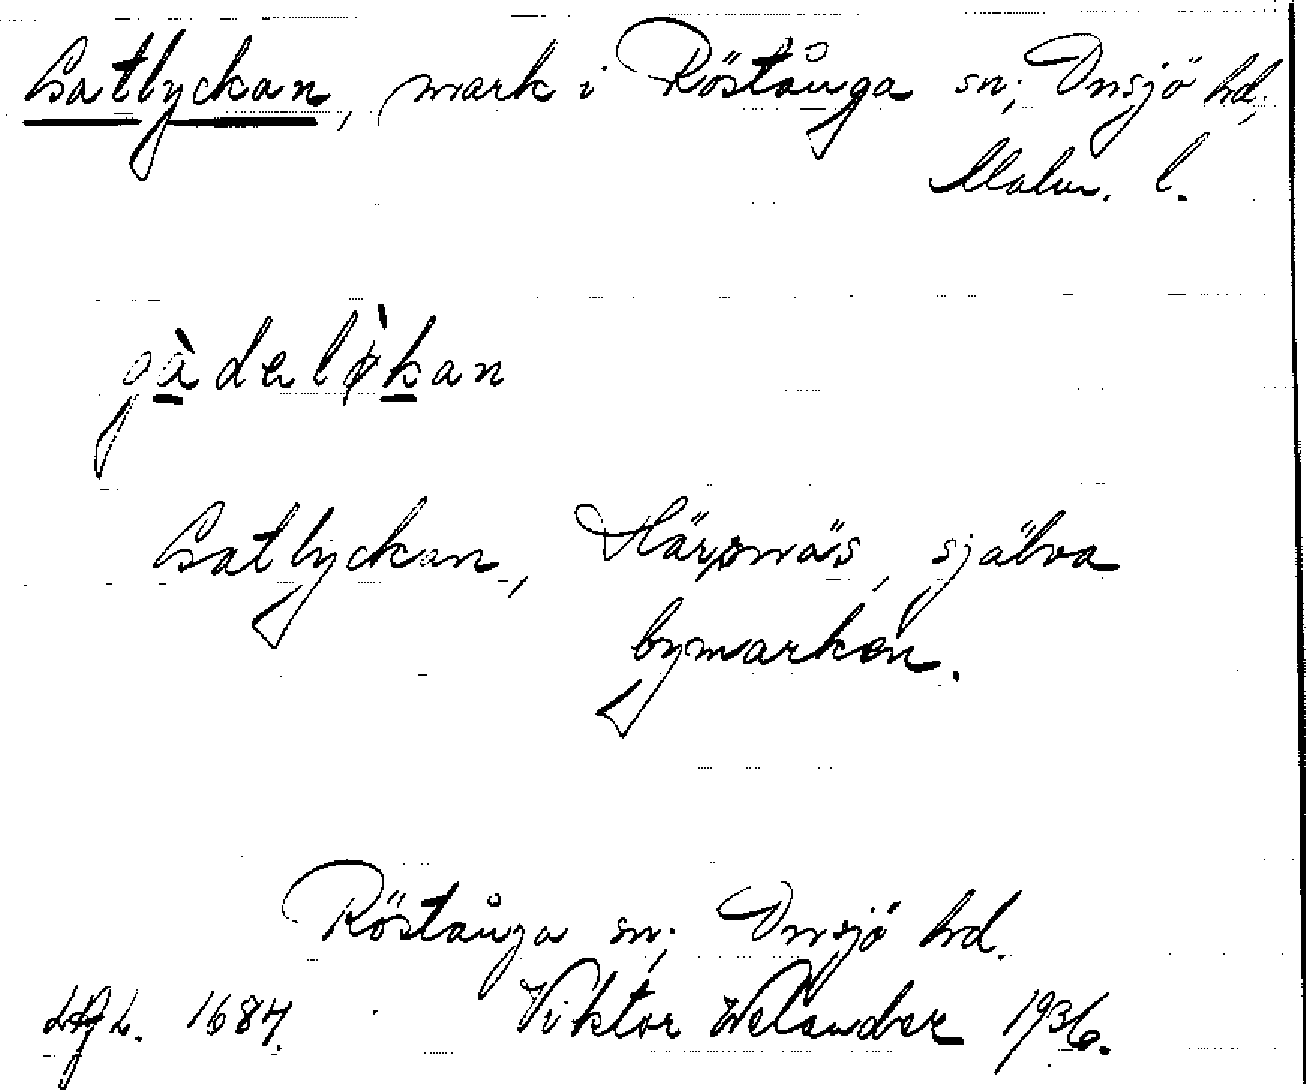 Gatlyckan, mark i Röstånga sn; Onsjö hd,
Malm. l.
gàdelø̀kan
Gatlyckan, Härsnäs, själva
bymarken.
Röstånga sn; Onsjö hd.
1684. Viktor Welander 1936.